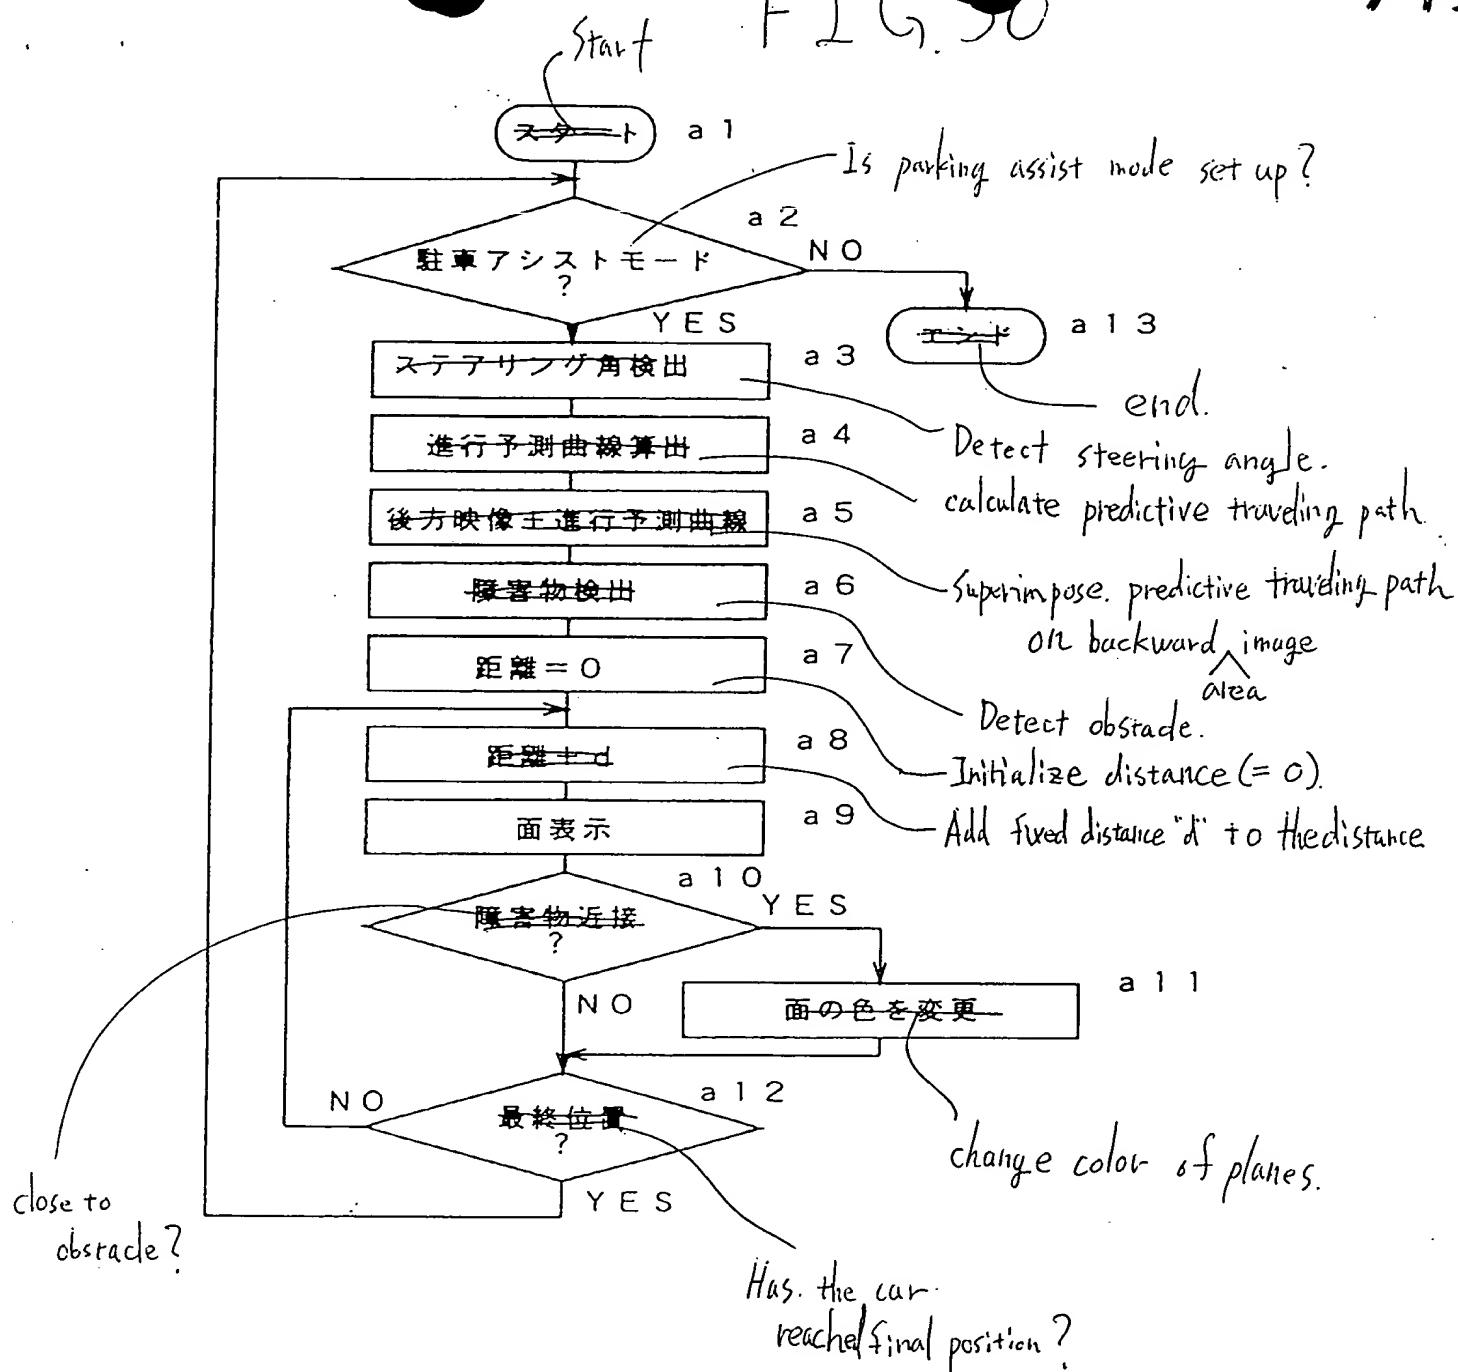 FIG. 30
Start
スタート a1
Is parking assist mode set up?
a2
駐車アシストモード
?
NO
YES
エンド a13
end.
ステアリング角検出 a3
Detect steering angle.
進行予測曲線算出 a4
calculate predictive traveling path.
後方映像+進行予測曲線 a5
Superimpose. predictive traveling path
on backward image
area
障害物検出 a6
Detect obstacle.
距離=0 a7
Initialize distance (= 0).
距離+d a8
Add fixed distance "d" to the distance
面表示 a9
a10
障害物近接
?
YES
NO
close to
obstacle?
面の色を変更 a11
change color of planes.
a12
最終位置
?
NO
YES
Has. the car
reached final position?